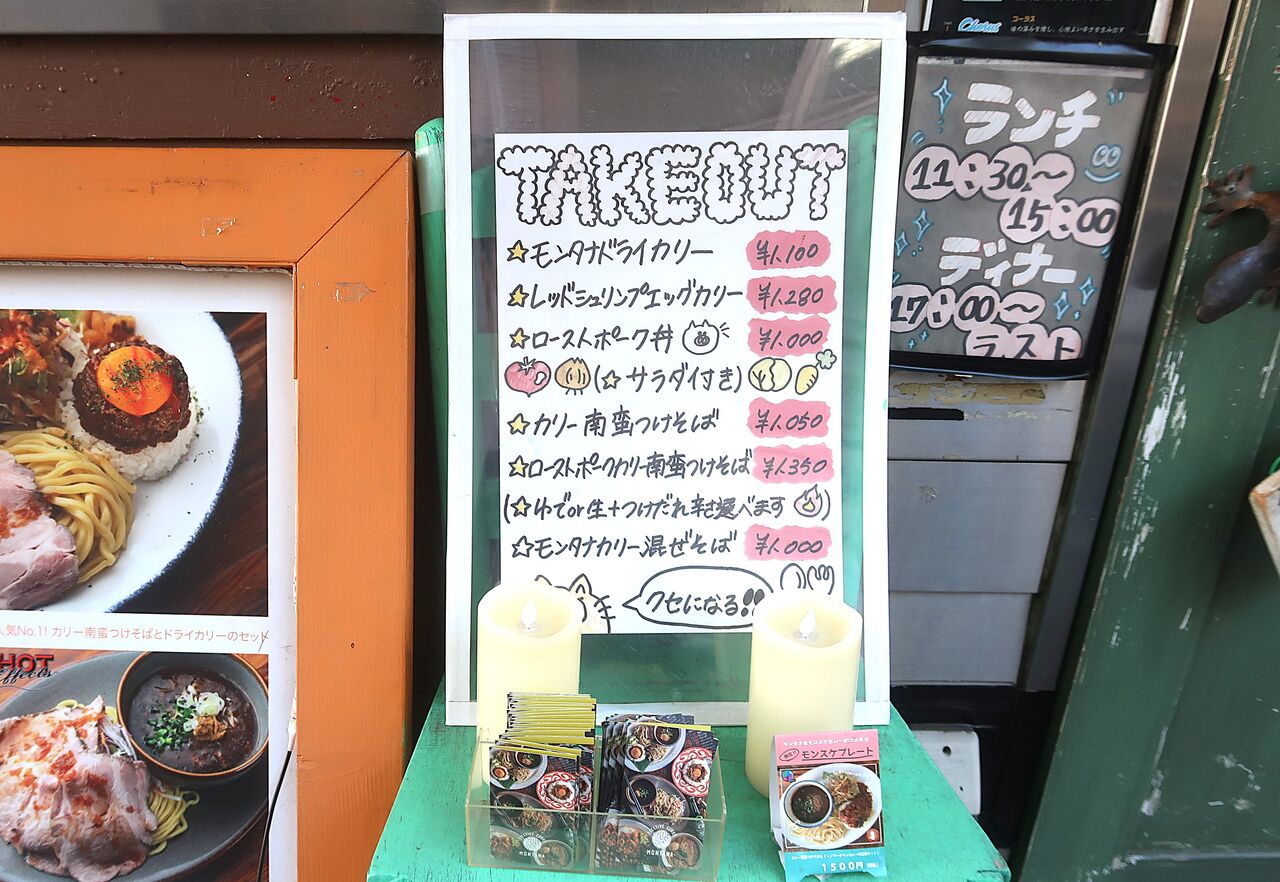 TAKEOUT
モンタナドライカリー ¥1,100
レッドシュリンプエッグカリー ¥1,280
ローストポーク丼 ¥1,000
(☆ サラダ付き)
カリー南蛮つけそば ¥1,050
ローストポークカリー南蛮つけそば ¥1,350
(☆ゆでor生+つけだれ辛さ選べます)
☆モンタナカリー混ぜそば ¥1,000
クセになる!!
コーラス
Chorus
ランチ
11:30〜
15:00
ディナー
17:00〜
ラスト
人気No.1! カリー南蛮つけそばとドライカリーのセット
HOT
Effects
MONTANA
モンスケプレート
1500円